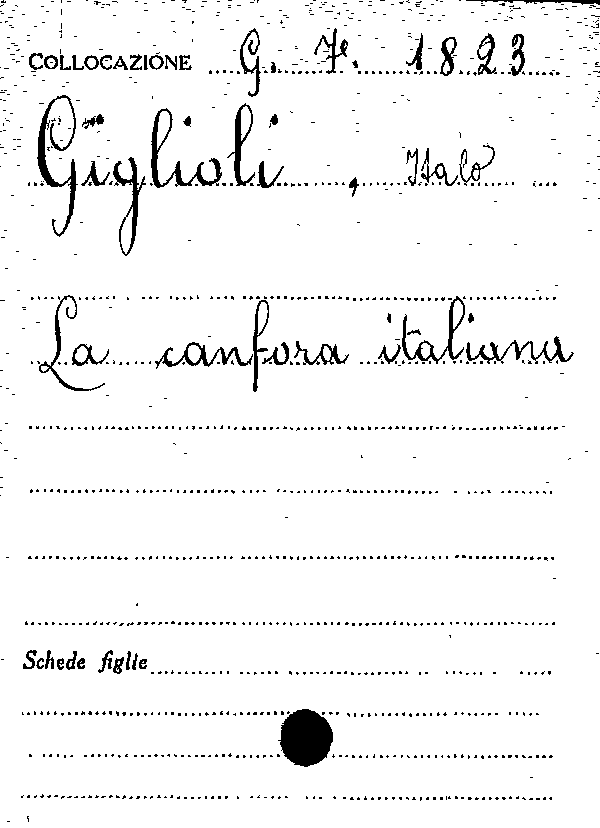 COLLOCAZIONE G. 7e. 1823
Giglioli, Italo
La canfora italiana
Schede figlie